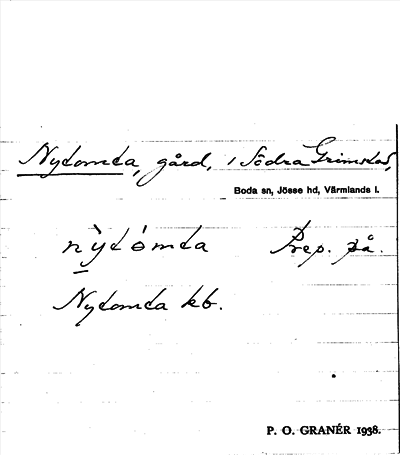 Nytomta, gård, i Södra Grimstad,
Boda sn, Jösse hd, Värmlands l.
nỳtómta Prep. på.
Nytomta kb.
P. O. GRANÉR 1938.